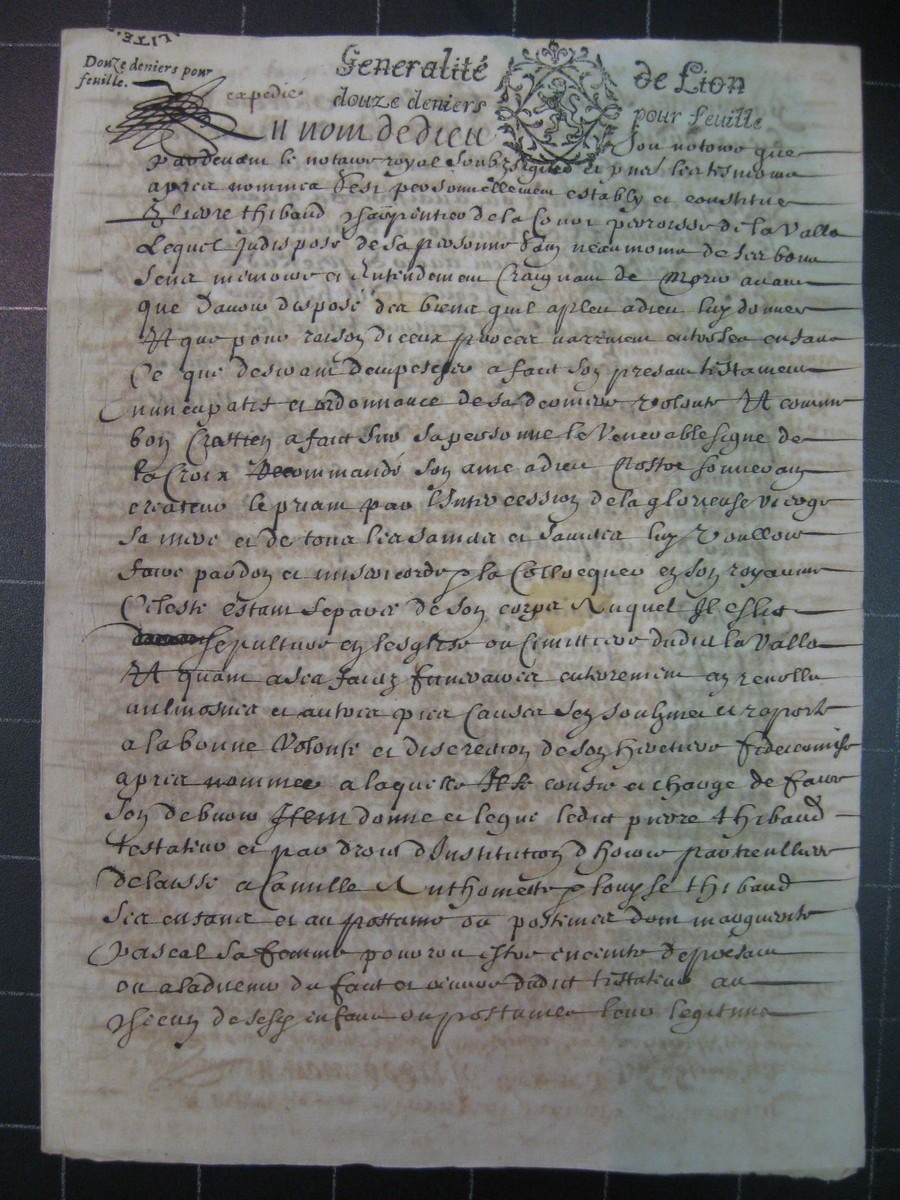 Douze deniers pour
feuille.
Generalité de Lion
expedié
douze deniers pour feuille
Au nom de dieu Soit notoire que
pardevant le notaire royal soubzsigné et pnts les tesmoins
apres nommes sest personnellement estably et constitue
pierre thibaud charpentier de la parroisse de la Valla
Lequel indispose de sa personne sain neanmoins de ses bons
sens memoire et entendement Craignant de Morir avant
que davoir dispose des biens quil a pleu a dieu luy donner
Et que pour raison diceux proces entre ses enfans
Ce que desirant empescher a fait son presant testament
nuncupatif et ordonnance de sa derniere volonte Et comme
bon Crestien a faict sur sa personne le Venerable signe de
la Croix Recommandé son ame a dieu Nostre souverain
createur le priant par lIntercession de la glorieuse vierge
sa mere et de tous les saincts et sainctes luy Voulloir
faire pardon et misericorde & la Collocquer en son royaume
Celeste estant separée de son corps Auquel Il eslit
sepulture en lesglise ou Cimittiere dudict la Valla
Et quant a ses fraiz funeraires enterrement
aulmosnes et autres pies Causes sen soubzmet et raporte
a la bonne Volonte et discretion de son heretiere fideicomise
apres nommee a laquelle Il se confie et charge de faire
son debvoir Item donne et legue ledict pierre thibaud
testateur et par droict dInstitution dhoirie particulliere
delaisse a Camille Anthoinette & Louyse thibaud
ses enfans et au postume ou postumes dont marguerite
Pascal sa femme pourroit estre enceinte de presant
ou a ladvenir du faict et oeuvre dudict testateur au
chacun de sesd enfans ou postumes leur legitime